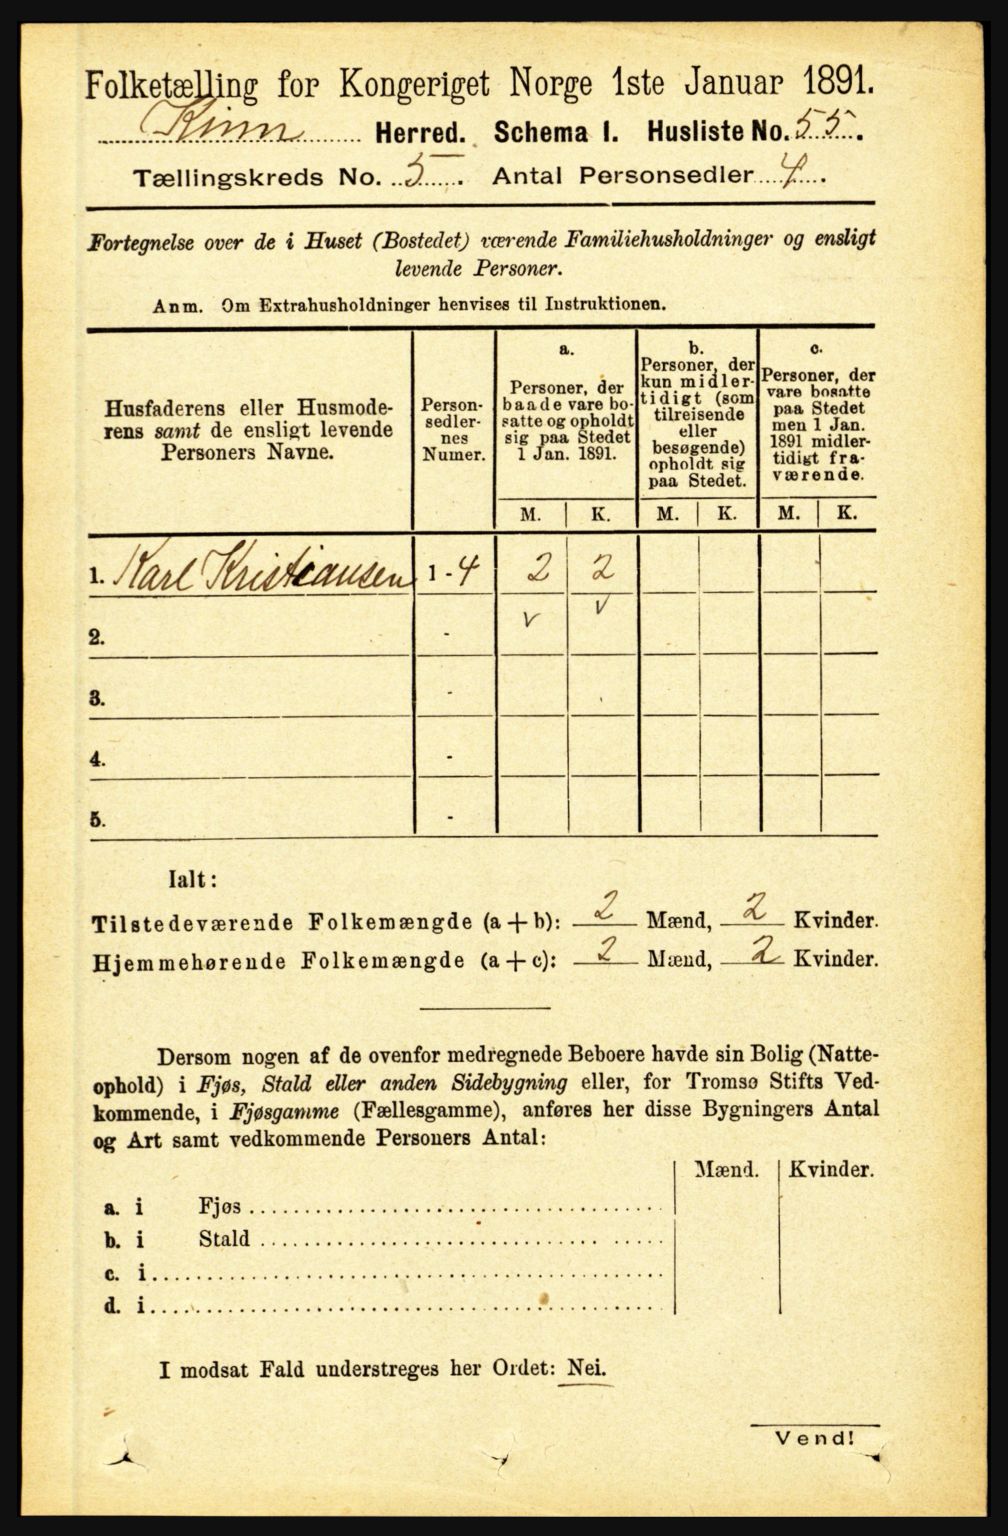 Folketælling for Kongeriget Norge 1ste Januar 1891.
Kinn Herred. Schema I. Husliste No. 55.
Tællingskreds No. 5. Antal Personsedler 4.
Fortegnelse over de i Huset (Bostedet) værende Familiehusholdninger og ensligt
levende Personer.
Anm. Om Extrahusholdninger henvises til Instruktionen.
Husfaderens eller Husmode-
rens samt de ensligt levende
Personers Navne.
Person-
sedler-
nes
Numer.
a.
Personer, der
baade vare bo-
satte og opholdt
sig paa Stedet
1 Jan. 1891.
b.
Personer, der
kun midler-
tidigt (som
tilreisende
eller
besøgende)
opholdt sig
paa Stedet.
c.
Personer, der
vare bosatte
paa Stedet
men 1 Jan.
1891 midler-
tidigt fra-
værende.
M. K. M. K. M. K.
1. Karl Kristiansen 1 - 4 2 2
v v
2. -
3. -
4. -
5. -
Ialt:
Tilstedeværende Folkemængde (a + b): 2 Mænd, 2 Kvinder.
Hjemmehørende Folkemængde (a + c): 2 Mænd, 2 Kvinder.
Dersom nogen af de ovenfor medregnede Beboere havde sin Bolig (Natte-
ophold) i Fjøs, Stald eller anden Sidebygning eller, for Tromsø Stifts Ved-
kommende, i Fjøsgamme (Fællesgamme), anføres her disse Bygningers Antal
og Art samt vedkommende Personers Antal:
Mænd. Kvinder.
a. i Fjøs
b. i Stald
c. i
d. i
I modsat Fald understreges her Ordet: Nei.
Vend!